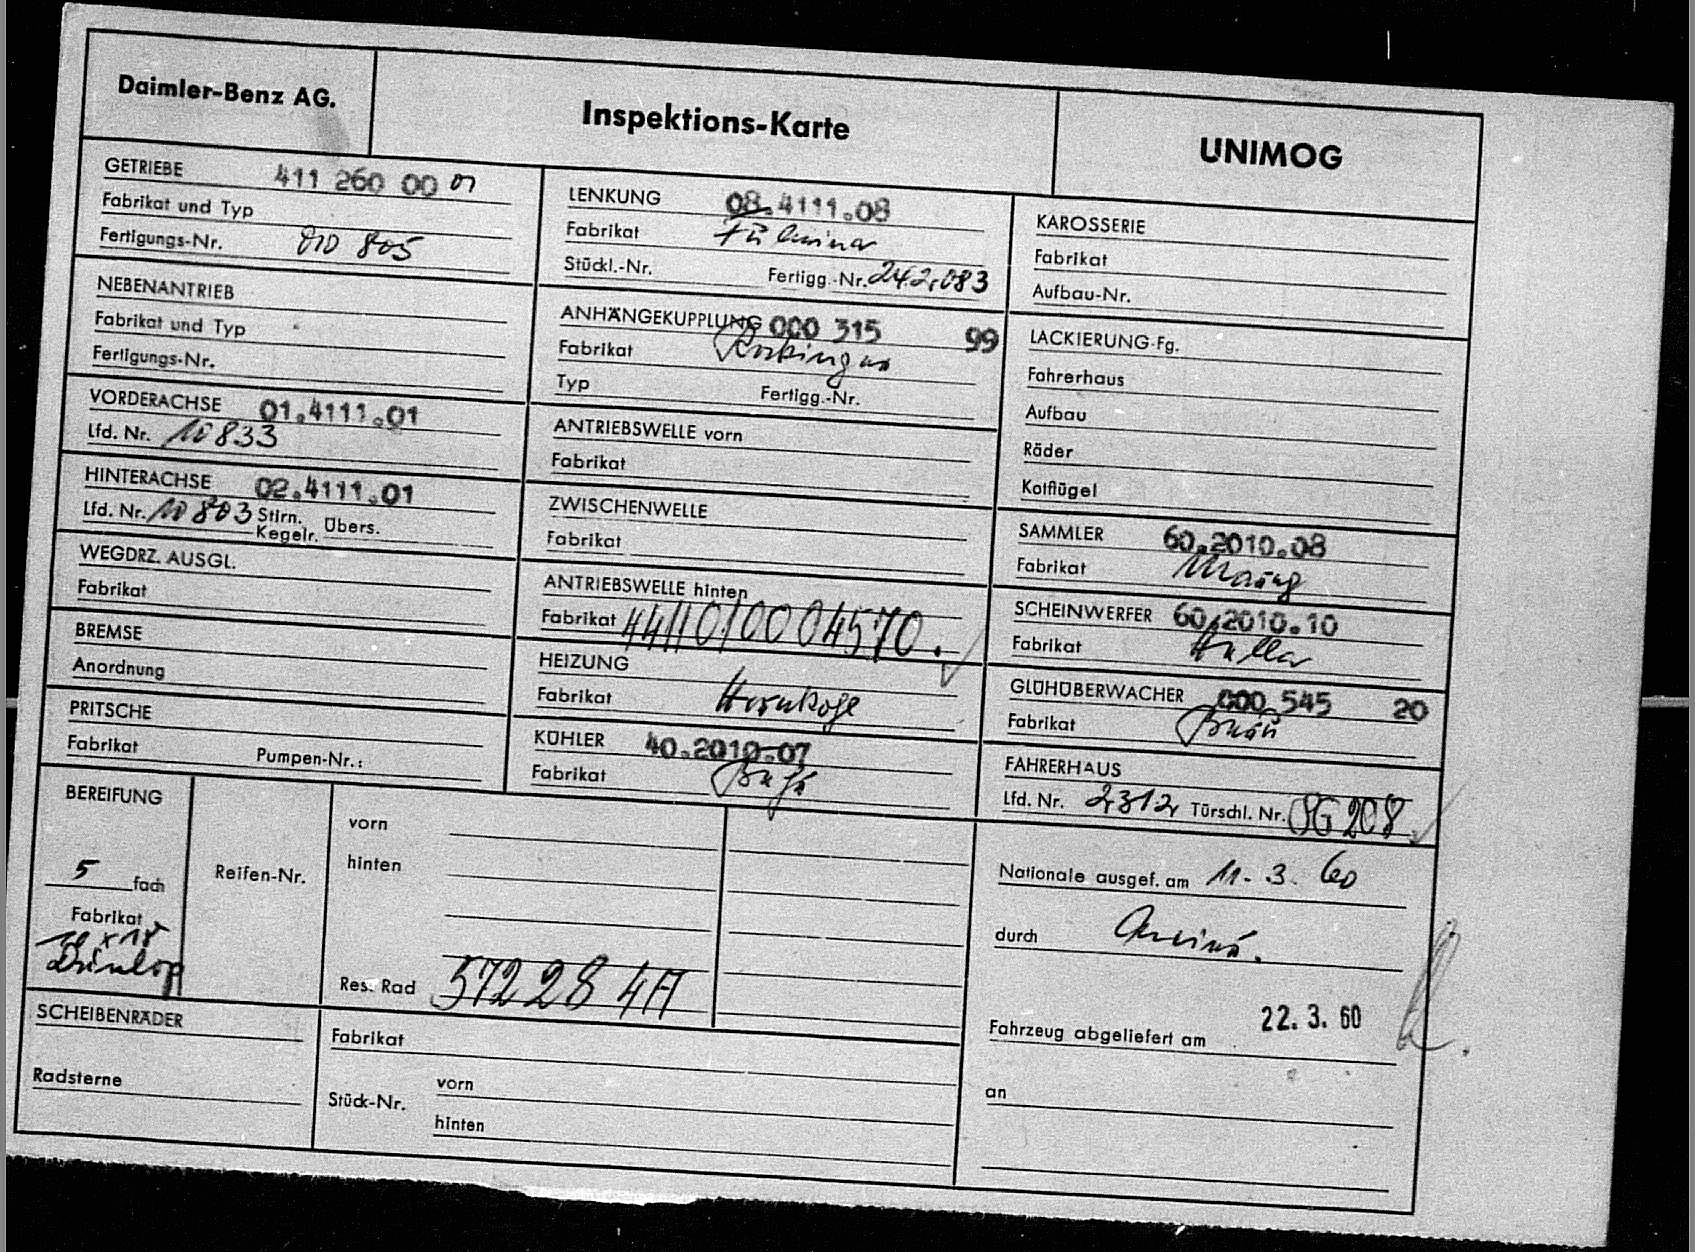 Daimler-Benz AG.
Inspektions-Karte
UNIMOG
GETRIEBE 411 260 00 01
Fabrikat und Typ
Fertigungs-Nr. 010 805
NEBENANTRIEB
Fabrikat und Typ
Fertigungs-Nr.
VORDERACHSE 01.4111.01
Lfd. Nr. 10833
HINTERACHSE 02.4111.01
Lfd. Nr. 10803 Stirn. Kegelr. Übers.
WEGDRZ. AUSGL.
Fabrikat
BREMSE
Anordnung
PRITSCHE
Fabrikat Pumpen-Nr.:
LENKUNG 08.4111.08
Fabrikat Fulmina
Stückl.-Nr. Fertigg.-Nr. 242.083
ANHÄNGEKUPPLUNG 000 315 99
Fabrikat
Typ Fertigg.-Nr.
ANTRIEBSWELLE vorn
Fabrikat
ZWISCHENWELLE
Fabrikat
ANTRIEBSWELLE hinten
Fabrikat
HEIZUNG
Fabrikat
KÜHLER 40.2010.07
Fabrikat
KAROSSERIE
Fabrikat
Aufbau-Nr.
LACKIERUNG-Fg.
Fahrerhaus
Aufbau
Räder
Kotflügel
SAMMLER 60.2010.08
Fabrikat
SCHEINWERFER 60.2010.10
Fabrikat
GLÜHÜBERWACHER 000 545 20
Fabrikat
FAHRERHAUS
Lfd. Nr. 2312 Türschl. Nr. SG 208
BEREIFUNG
5 fach
Fabrikat
10 x 18
Dunlop
Reifen-Nr.
vorn
hinten
Res. Rad 57228 4A
SCHEIBENRÄDER
Radsterne
Fabrikat
Stück-Nr.
vorn
hinten
Nationale ausgef. am 11. 3. 60
durch
Fahrzeug abgeliefert am 22. 3. 60
an